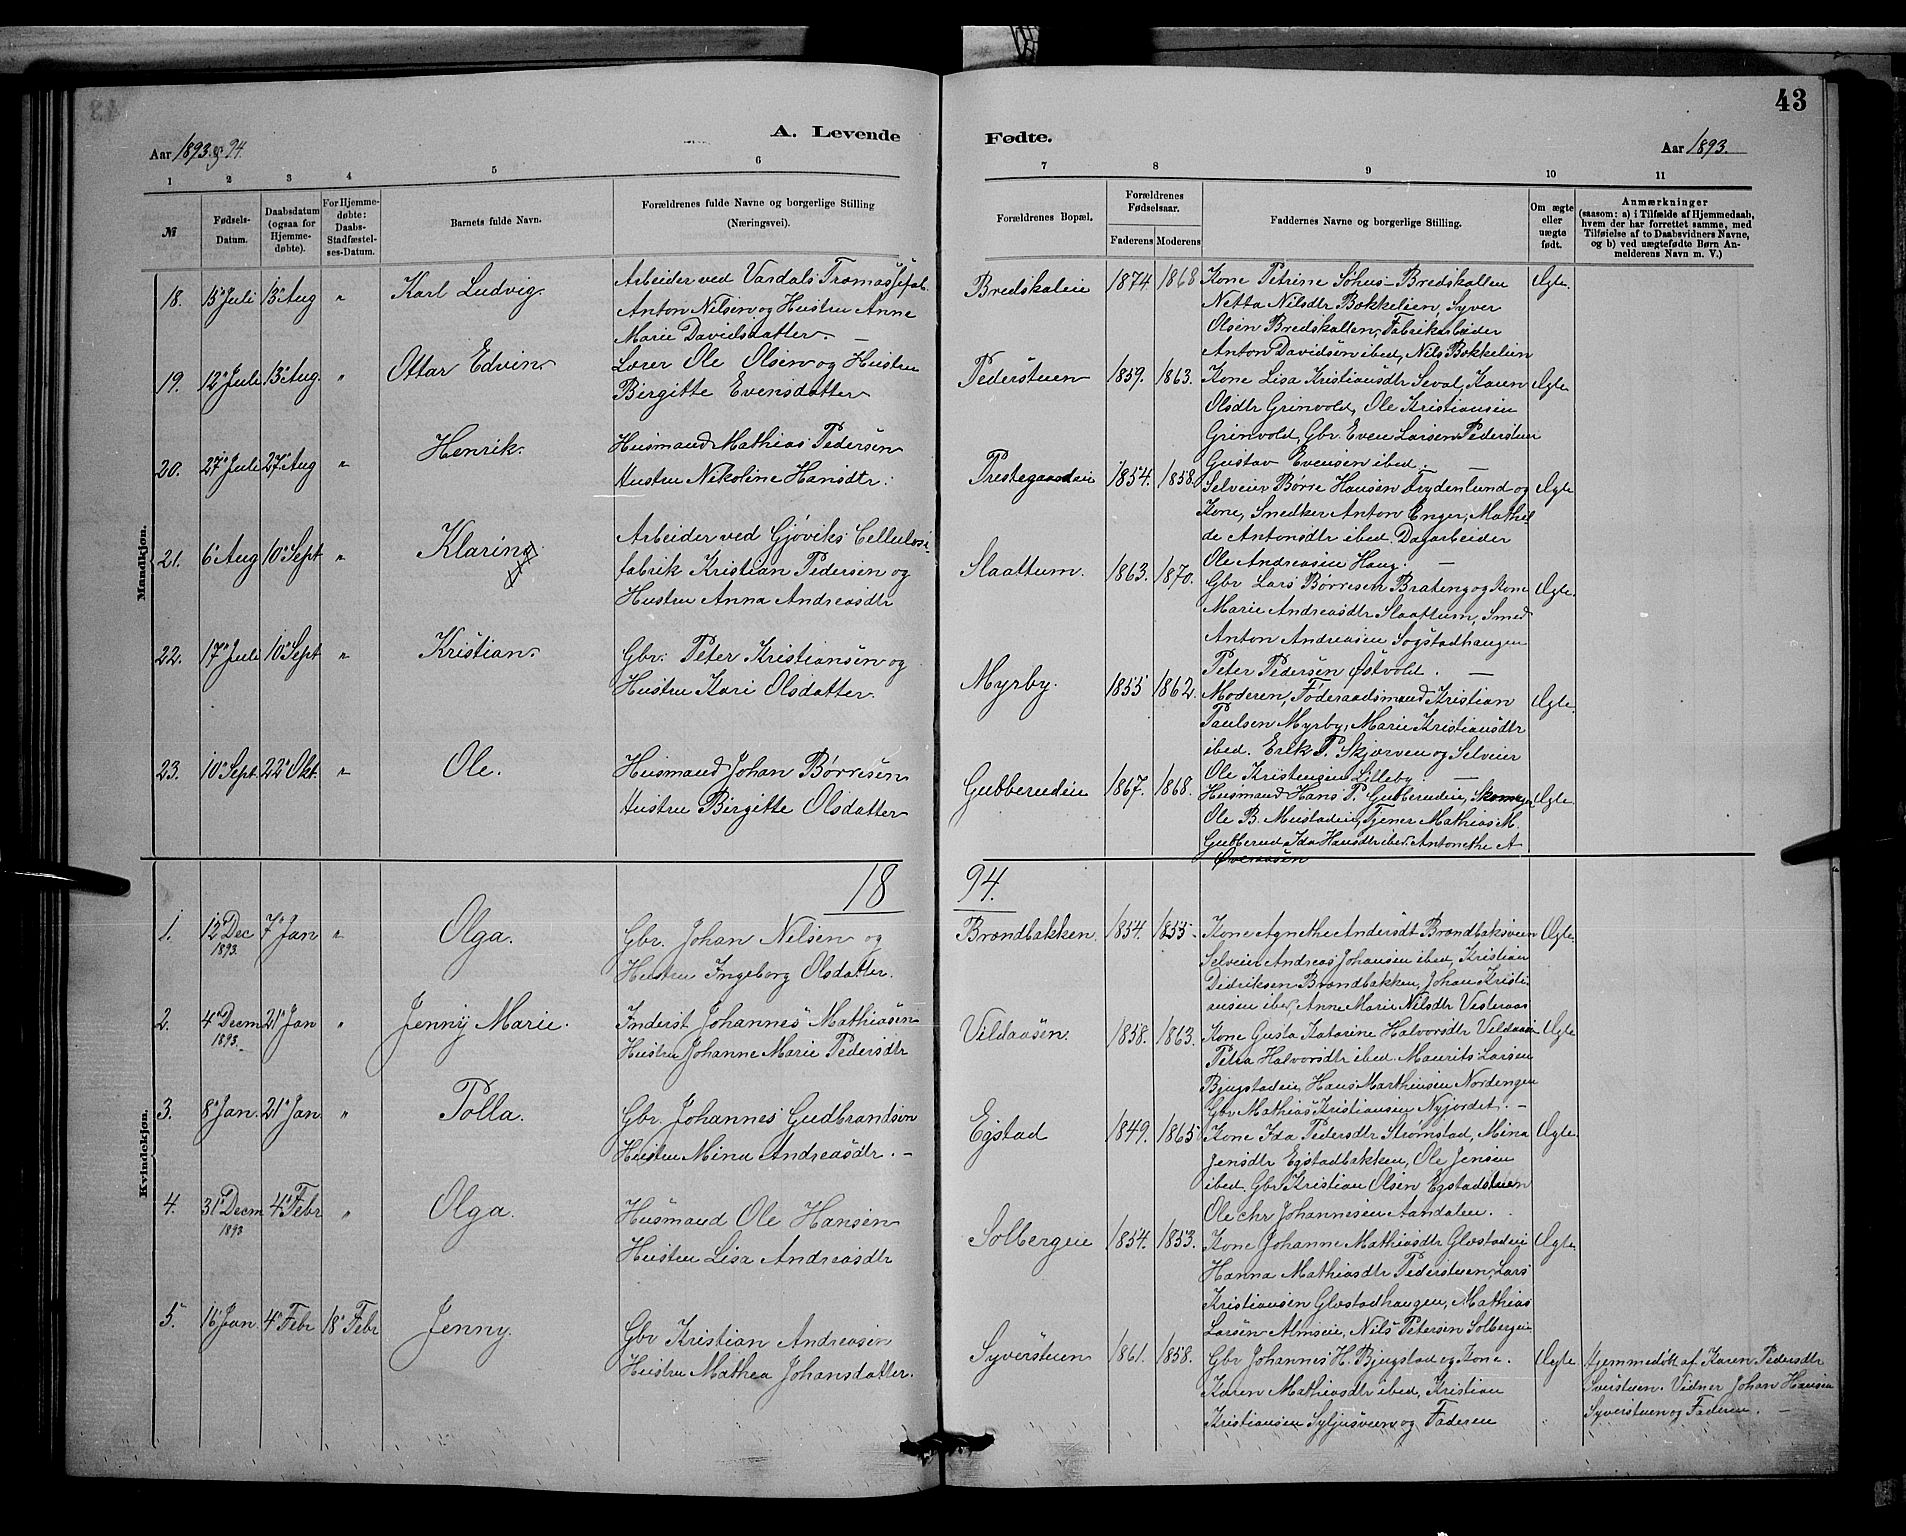 43
A. Levende Fødte.
Aar 1893 & 94.
Aar 1893.
1 2 3 4 5 6 7 8 9 10 11
№
Fødsels-Datum.
Daabsdatum (ogsaa for Hjemme-døbte).
For Hjemme-døbte: Daabs-Stadfæstel-ses-Datum.
Barnets fulde Navn.
Forældrenes fulde Navne og borgerlige Stilling (Næringsvei).
Forældrenes Bopæl.
Forældrenes Fødselsaar.
Faderens Moderens
Faddernes Navne og borgerlige Stilling.
Om ægte eller uægte født.
Anmærkninger
(saasom: a) i Tilfælde af Hjemmedaab, hvem der har forrettet samme, med Tilføielse af to Daabsvidners Navne, og b) ved uægtefødte Børn An-melderens Navn m. V.)
Mandkjøn.
18. 15 Juli 13 Aug " Karl Ludvig.
Arbeider ved Vardals Træmassefab.
Anton Nilsen og Hustru Anne
Marie Davidsdatter. —
Bredskalei 1874 1868
Kone Petrine Søhus Bredskallen
Netta Nilsdtr Bokkelien, Syver
Olsen Bredskallen, Fabrikarbeider
Anton Davidsen ibed, Nils Bokkelien
Ægte.
19. 12 Juli 13 Aug. " Ottar Edvin.
Lærer Ole Olsen og Hustru
Birgitte Evensdatter
Pederstuen 1859. 1863.
Kone Lisa Kristiansdtr Seval, Karen
Olsdtr Grinvold, Ole Kristiansen
Grinvold, Gbr. Even Larsen Pederstuen
Gustav Evensen ibed. —
Ægte
20. 27 Juli 27 Aug " Henrik.
Husmand Mathias Pedersen
Hustru Nikoline Hansdtr.
Prestegaardeie 1854. 1858.
Selveier Børre Hansen Frydenlund og
Kone, Snedker Anton Enger, Mathil
de Antonsdtr ibed. Dagarbeider
Ole Andreasen Haug. —
Ægte
21. 6 Aug 10 Sept " Klaring
Arbeider ved Gjøviks Cellulose-
fabrik Kristian Pedersen og
Hustru Anna Andreasdtr
Slaattum. 1863. 1870.
Gbr Lars Børresen Brateng og Kone
Marie Andreasdtr Slaattum, Smed
Anton Andreasen Sogstadhaugen
Peter Pedersen Østvold. —
Ægte.
22. 17 Juli 10 Sept " Kristian.
Gbr. Peter Kristiansen og
Hustru Kari Olsdatter.
Myrby. 1855 1862.
Moderen, Føderaadsmand Kristian
Paulsen Myrby, Marie Kristiansdtr
ibed. Erik P. Skjerven og Selveier
Ole Kristensen Lilleby. —
Ægte.
23. 10 Sept. 22 Okt. " Ole.
Husmand Johan Børresen
Hustru Birgitte Olsdatter
Gubberudeie 1867. 1868.
Husmand Hans P. Gubberudeie, Skomager
Ole B. Mustadeie, Tjener Mathias M.
Gubberud Ida Hansdtr ibed. Antonethe A
Øveraasen
Ægte.
1894.
Kvindekjøn.
1. 12 Dec 1893. 7 Jan " Olga.
Gbr. Johan Nilsen og
Hustru Ingeborg Olsdatter.
Brændbakken. 1854. 1855.
Kone Agnethe Andersdt Brændbaksveen
Selveier Andreas Johansen ibed, Kristian
Didriksen Brændbakken, Johan Kristi-
ansen ibed, Anne Marie Nilsdtr Vesteraas
Ægte.
2. 4 Decm 1893. 21 Jan " Jenny Marie.
Inderst Johannes Mathiasen
Hustru Johanne Marie Pedersdtr
Vildaasen. 1858. 1863.
Kone Gusta Katarine Halvorsdtr Vildaasen
Petra Halvorsdtr ibed. Maurits Larsen
Bjugstadeie, Hans Marthinsen Nordengen
Gbr Mathias Kristiansen Nyjordet. —
Ægte
3. 8 Jan. 21 Jan " Polla.
Gbr. Johannes Gudbrandsen
Hustru Mina Andreasdtr. —
Egstad 1849. 1865
Kone Ida Pedersdtr Strømstad, Mina
Jensdtr Egstadbakken, Ole Jensen
ibed. Gbr Kristian Olsen Egstadstuen
Ole Chr Johannesen Aandalen.
Ægte.
4. 31 Decm 1893 4 Febr " Olga.
Husmand Ole Hansen
Hustru Lisa Andreasdtr
Solbergeie 1854. 1853.
Kone Johanne Mathiasdtr Glæstadeie
Hanna Mathiasdtr Pederstuen, Lars
Kristiansen Glæstadhaugen, Mathias
Larsen Almseie, Nils Petersen Solbergeie
Ægte
5. 16 Jan 4 Febr 18 Febr Jenny.
Gbr Kristian Andreasen
Hustru Mathea Johansdatter.
Syverstuen 1861. 1858.
Gbr Johannes H. Bjugstad og Kone.
Karen Mathiasdtr ibed, Kristian
Kristiansen Syljusveen og Faderen
Ægte
Hjemmedøbt af Karen Pedersdtr
Sverstuen. Vidner Johan Hansen
Syverstuen og Faderen. —